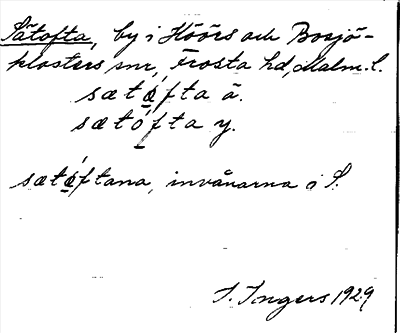 Sätofta, by i Höörs och Bosjö-
klosters snr, Frosta hd, Malm. l.
sætǿfta ä.
sætófta y.
sætǿftana, invånarna i S.
I. Ingers 1929